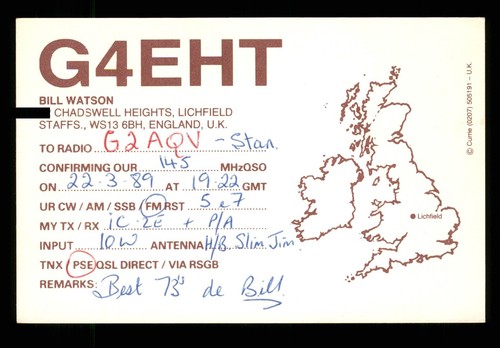 G4EHT
BILL WATSON
CHADSWELL HEIGHTS, LICHFIELD
STAFFS., WS13 6BH, ENGLAND, U.K.
TO RADIO G2AQV - Stan.
CONFIRMING OUR 145 MHz QSO
ON 22-3-89 AT 19.22 GMT
UR CW / AM / SSB / FM RST 5 e 7
MY TX / RX iC-2E + P/A
INPUT 10W ANTENNA H/B. Slim. Jim
TNX / PSE QSL DIRECT / VIA RSGB
REMARKS: Best 73's de Bill.
Lichfield
© Currie (0207) 505191 – U.K.